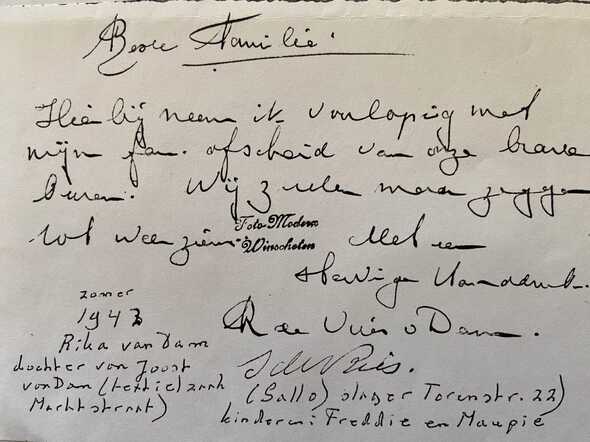 Beste Familie!
Hierbij neem ik voorlopig met
mijn fam. afscheid van onze brave
buren. Wij zullen maar zeggen
tot weerziens. Met een
Foto Modern
Winschoten
stevige handdruk.
R de Vries v Dam.
S de Vries.
zomer
1943
Rika van Dam
dochter van Joost
van Dam (textielzaak
Marktstraat)
(Sallo) slager Torenstr. 22)
kinderen: Freddie en Maupie